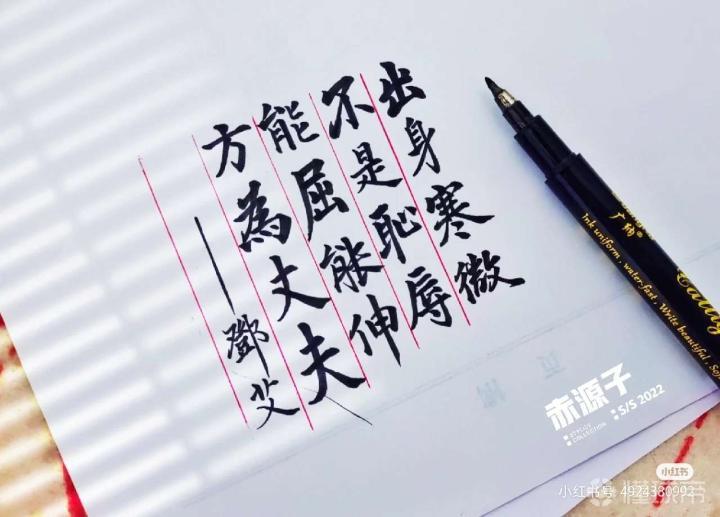 出身寒微
不是恥辱
能屈能伸
方為丈夫
——鄧艾
Ink uniform, water-fast. Write beautiful, So
赤源子
S/S 2022
COLLECTION
小红书
小红书号 4924380992
懂球帝